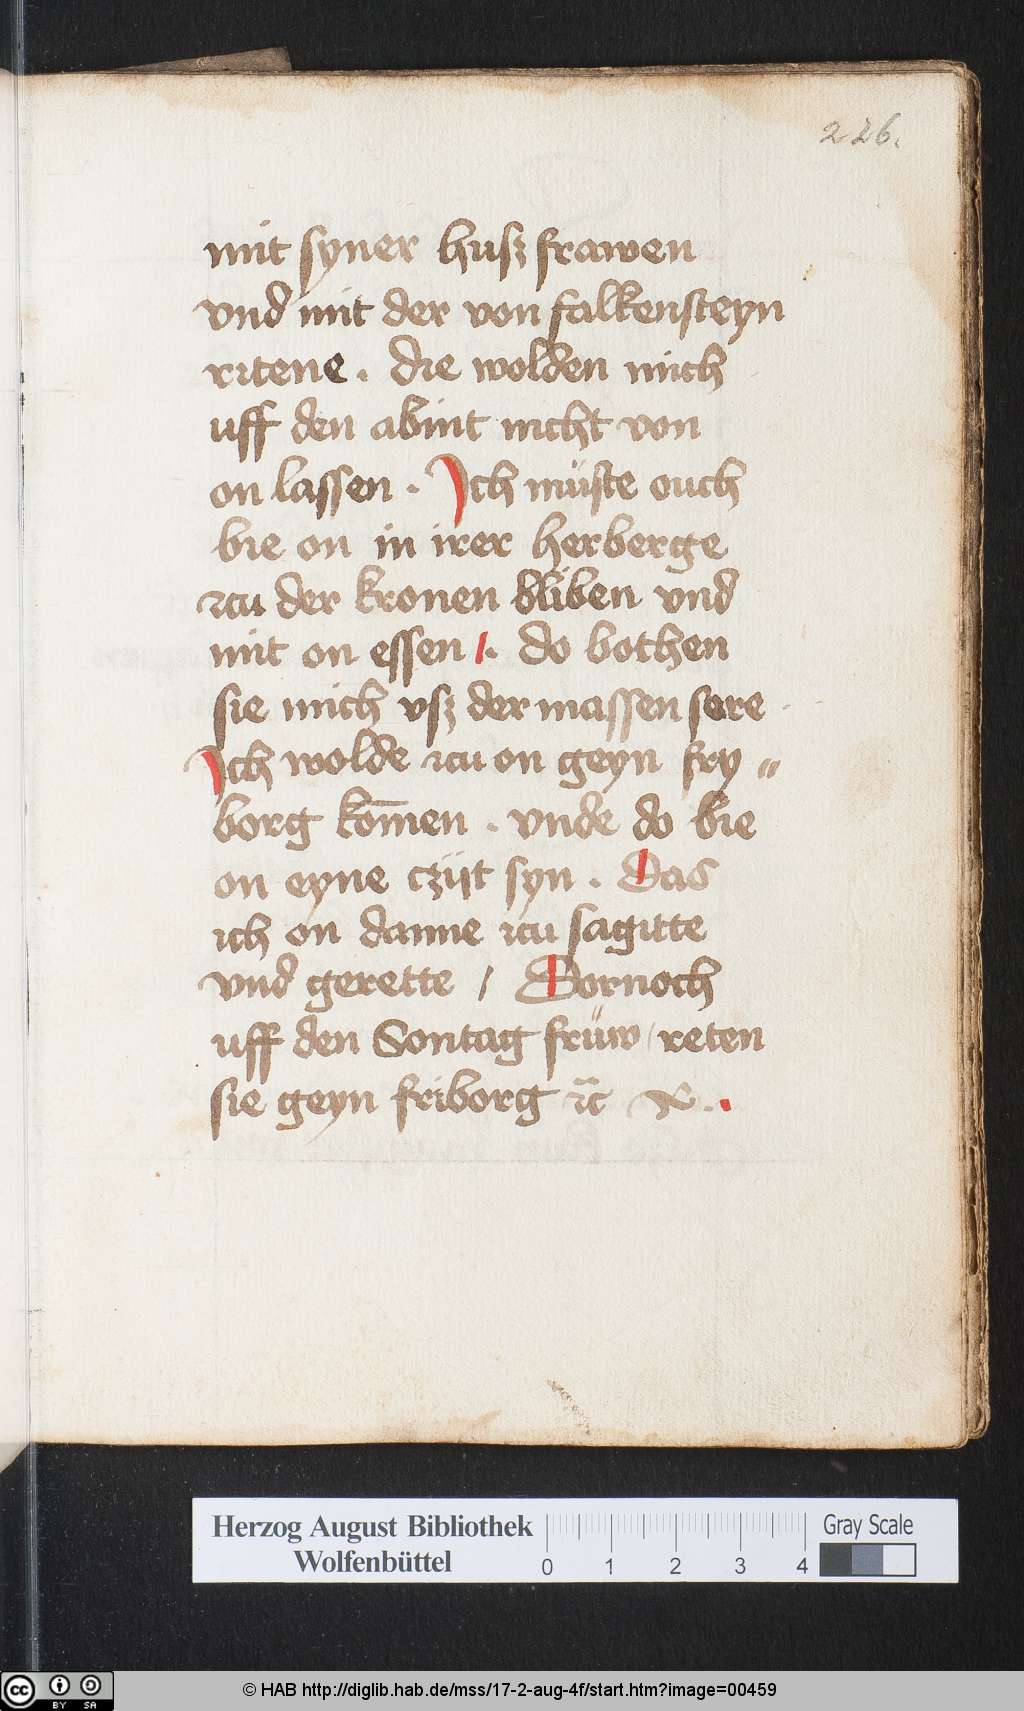 226.
mit syner husz frawen
vnd mit der von falkensteyn
ritene . die wolden mich
uff den abint nicht von
on lassen . Ich müste ouch
bie on in irer herberge
zcu der kronen bliben vnd
mit on essen /. do bothen
sie mich vsz der massen sere
Ich wolde zcu on geyn fry„
borg kōmen . vnde do bie
on eyne czijt syn . Das
ich on danne zcu sagitte
vnd gerette / Dornoch
uff den Sontag früw / reten
sie geyn friborg ꝛc
Herzog August Bibliothek
Wolfenbüttel
0 1 2 3 4
Gray Scale
cc BY SA
© HAB http://diglib.hab.de/mss/17-2-aug-4f/start.htm?image=00459